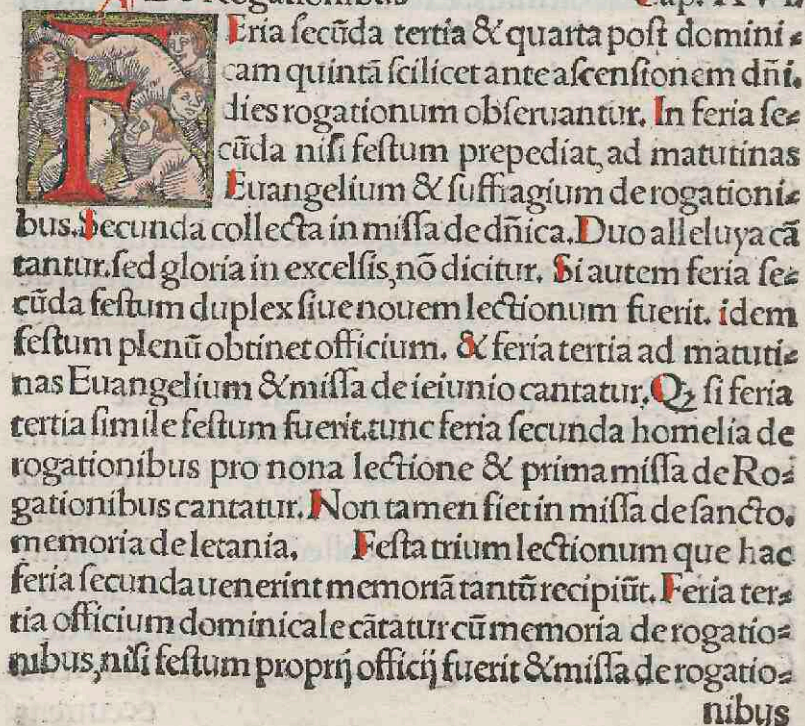 De Rogationibus Cap. XVI
FEria ſecūda tertia & quarta poſt domini⸗
cam quintā ſcilicet ante aſcenſionem dn̄i.
dies rogationum obſeruantur. In feria ſe⸗
cūda niſi feſtum prepediat, ad matutinas
Euangelium & ſuffragium de rogationi⸗
bus. Secunda collecta in miſſa de dn̄ica. Duo alleluya cā
tantur. ſed gloria in excelſis, nō dicitur. Si autem feria ſe⸗
cūda feſtum duplex ſiue nouem lectionum fuerit. idem
feſtum plenū obtinet officium. & feria tertia ad matuti⸗
nas Euangelium & miſſa de ieiunio cantatur. Qꝫ ſi feria
tertia ſimile feſtum fuerit. tunc feria ſecunda homelia de
rogationibus pro nona lectione & prima miſſa de Ro⸗
gationibus cantatur. Non tamen fiet in miſſa de ſancto.
memoria de letania. Feſta trium lectionum que hac
feria ſecunda uenerint memoriā tantū recipiūt. Feria ter⸗
tia officium dominicale cātatur cū memoria de rogatio⸗
nibus, niſi feſtum proprij officij fuerit & miſſa de rogatio⸗
nibus